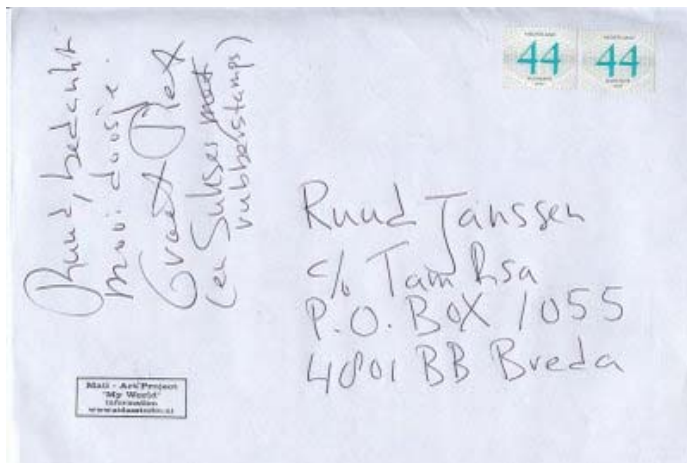 Ruud, bedankt
mooi doosje.
Groet
(en Sukses met
rubberstamps)
NEDERLAND
44
NEDERLAND
44
Ruud Janssen
c/o Tam Rsa
P.O. BOX 1055
4801 BB Breda
Mail - Art Project
"My World"
Information